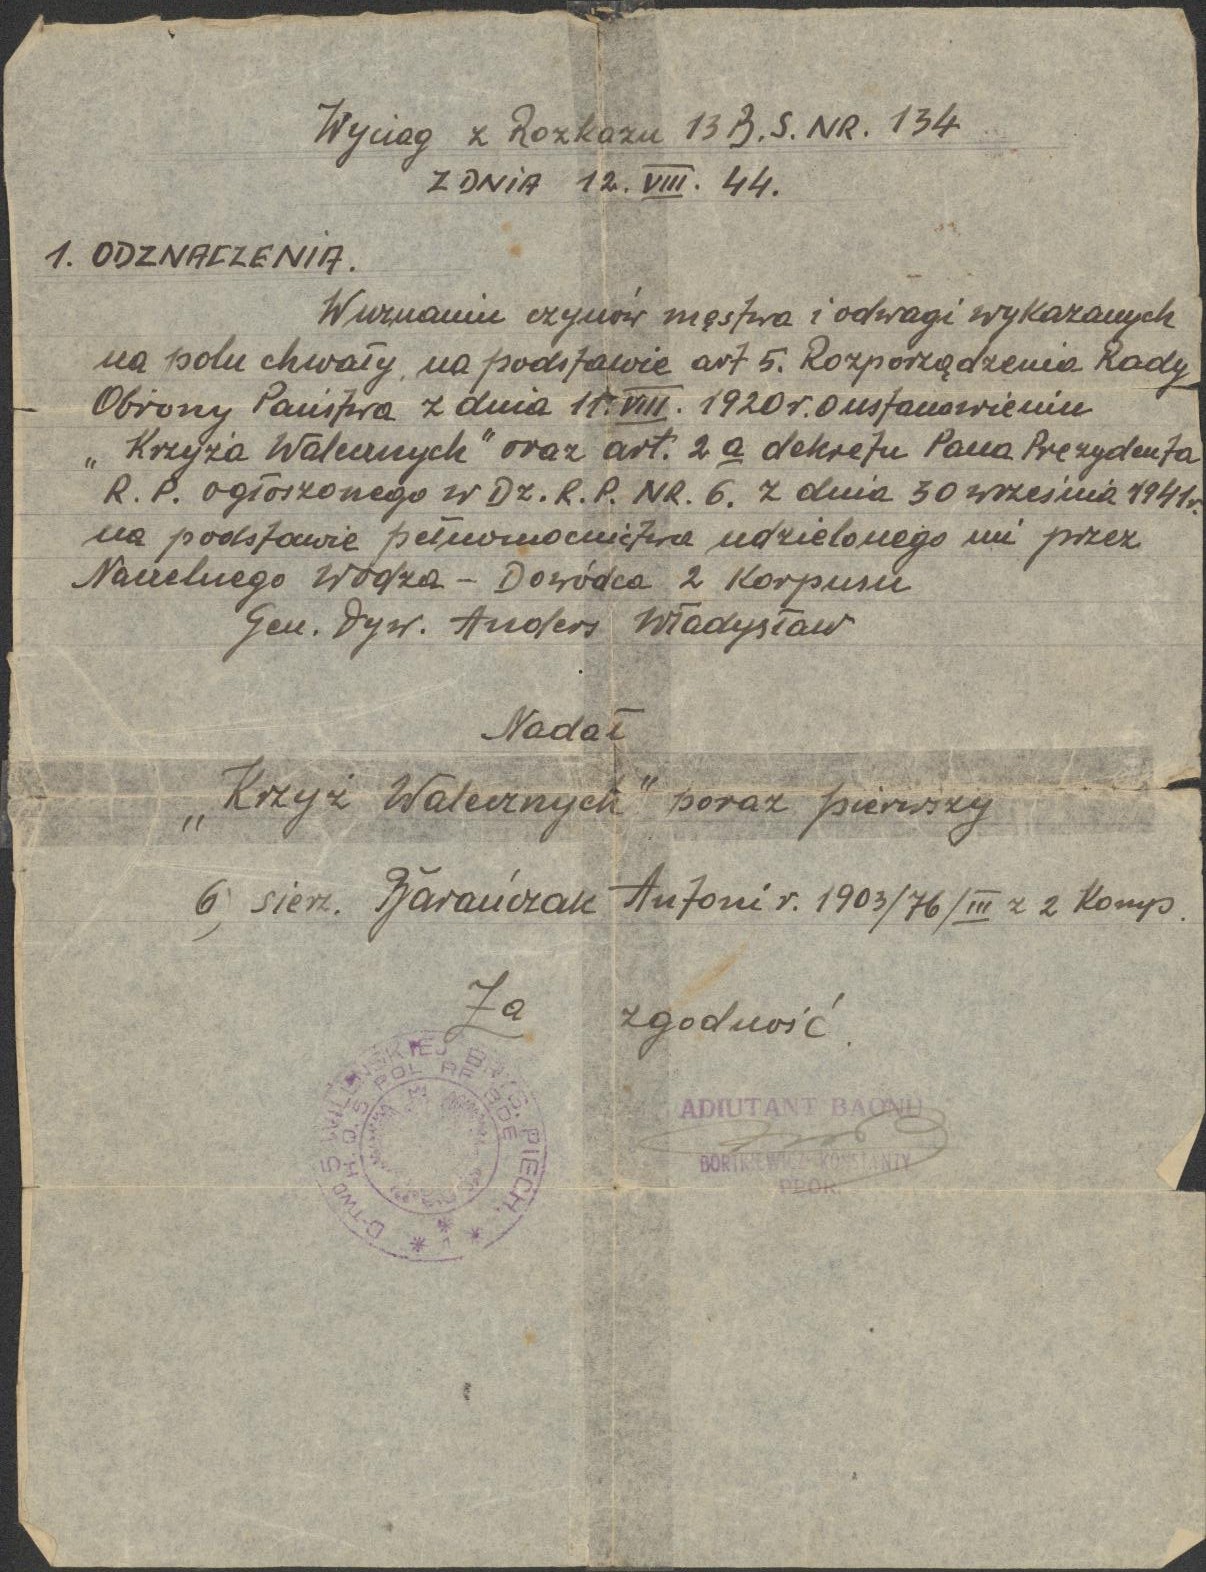 Wyciąg z Rozkazu 13 B.S. NR. 134
Z DNIA 12. VIII. 44.
1. ODZNACZENIA.
W uznaniu czynów męstwa i odwagi wykazanych
na polu chwały, na podstawie art 5. Rozporządzenia Rady
Obrony Państwa z dnia 11. VIII. 1920 r. o ustanowieniu
„Krzyża Walecznych" oraz art. 2 a dekretu Pana Prezydenta
R. P. ogłoszonego w Dz. R. P. NR. 6. z dnia 30 września 1941 r.
na podstawie pełnomocnictwa udzielonego mi przez
Naczelnego Wodza – Dowódca 2 Korpusu
Gen. Dyw. Anders Władysław
Nadał
„Krzyż Walecznych" poraz pierwszy
6) sierż. Barańczak Antoni r. 1903/76/III z 2 Komp.
Za zgodność.
D-TWO 5 WILEŃSKIEJ BRYG. PIECH.
POL
ADIUTANT BAONU
BORTKIEWICZ KONSTANTY
PPOR.